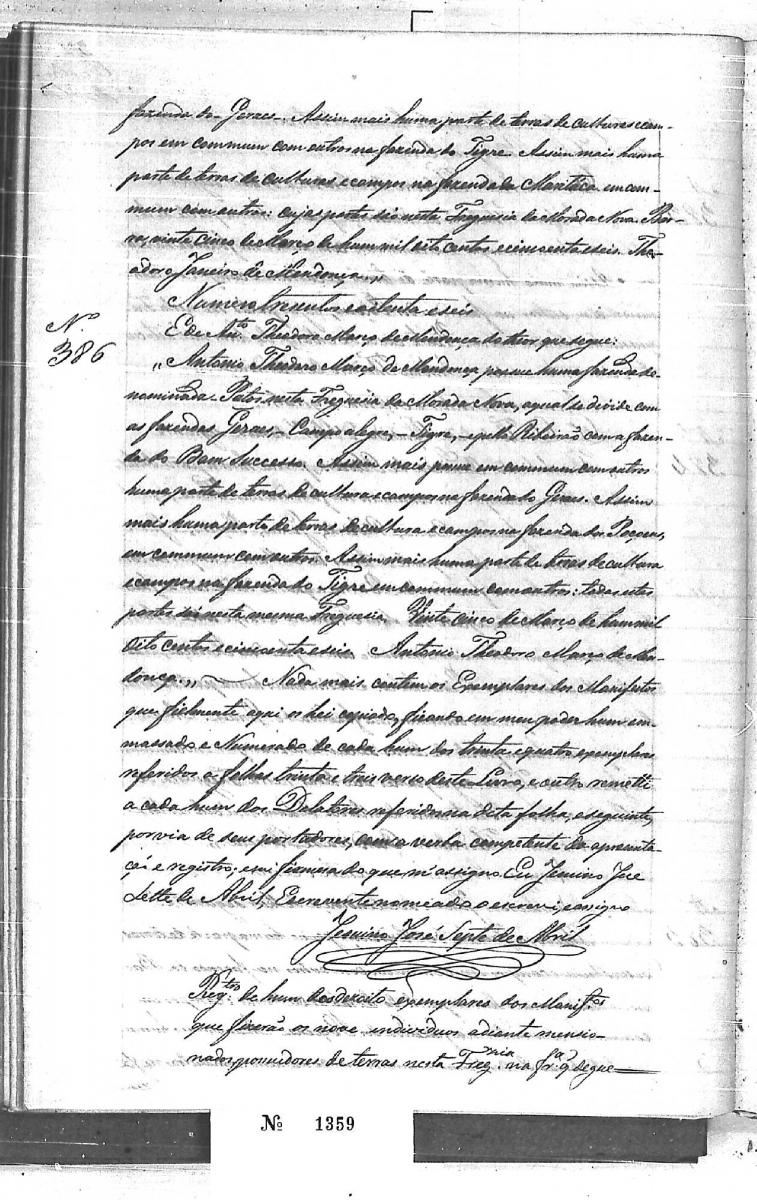 fazenda do Geraes. Assim mais huma parte de terras de culturas e cam-
pos em commum com outros na fazenda do Tigre. Assim mais huma
parte de terras de culturas e campos na fazenda da em com-
mum com outros: cujas partes são nesta Freguesia da Morada Nova. Bar-
ra, vinte cinco de Março de hum mil oito centos e cincoenta e seis. The-
odoro Janeiro de Mendonça.,,
Numero trezentos e oitenta e seis
Nº
386
E de An.to Theodoro Março de Mendonça do theor que segue:
,,Antonio Theodoro Março de Mendonça possue huma fazenda de-
nominada Patos nesta Freguesia da Morada Nova, a qual se divide com
as fazendas Geraes, - Campo alegre, - Tigre, e pelo Ribeirão com a fazen-
da do Bom Successo. Assim mais possue em commum com outros
huma parte de terras de cultura e campos na fazenda do Geraes. Assim
mais huma parte de terras de cultura e campos na fazenda dos Poçoens,
em commum com outros. Assim mais huma parte de terras de cultura
e campos na fazenda do Tigre em commum com outros: todas estas
partes são nesta mesma Freguesia. Vinte cinco de Março de hum mil
oito centos e cincoenta e seis. Antonio Theodoro Março de Men-
donça.,, Nada mais contem os Exemplares dos Manifestos
que fielmente aqui os hei copiado, ficando em meu poder hum em-
massado e Numerado de cada hum dos trinta e quatro exemplares
referidos a folhas trinta e tres verso deste Livro, e outro remetti
a cada hum dos Delatores referidos na dita folha, e seguinte,
por via de seus portadores, com a verba competente da aprezenta-
ção e registro; e em firmeza do que m'assigno Eu Jesuino Joze
Sette de Abril, Escrevente nomeado o escrevi, e assigno
Jesuino José Septe de Abril
Reg.tro de hum dos dezoito exemplares dos Manif.os
que fizerão os nove individuos adiante mensio-
nados possuidores de terras nesta Freg. na fr.a q segue
Nº 1359